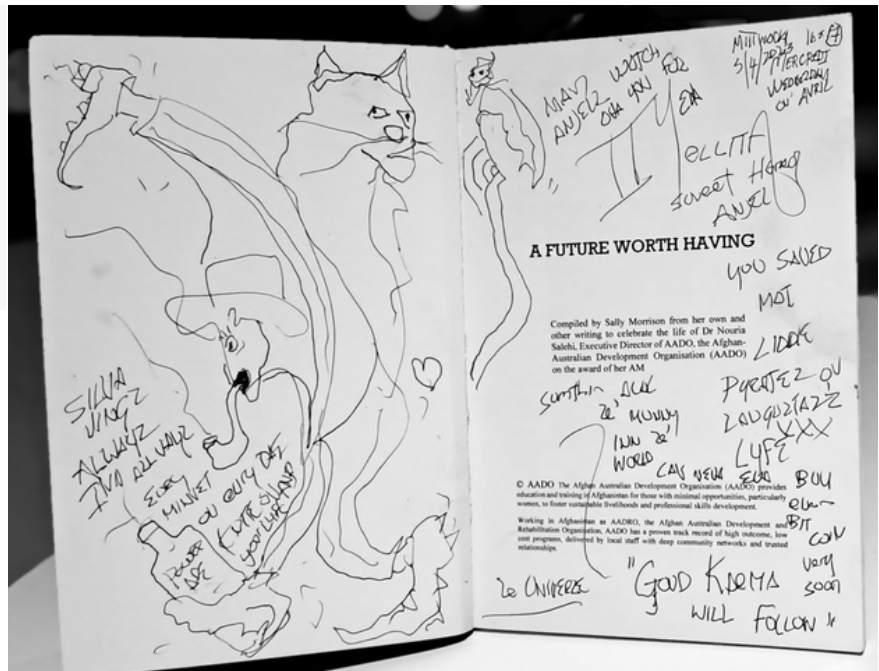 SILVA
WINGZ
ALLWAYZ
AND ALL WAYZ
EVRY
MINNET
OV EVRY DAE
YOUR
POWER
ADE
MAY
ANJELZ WOTCH
OVA YOU FOR
EVA
5/4/2023
MERCREDI
WEDDERDAY
OV AVRIL
MELLITA
SWEET
ANJEL
A FUTURE WORTH HAVING
YOU SAVED
MOI
LIDDLE
PYRATEZ OV
XXX
LYFE
Compiled by Sally Morrison from her own and
other writing to celebrate the life of Dr Nouria
Salehi, Executive Director of AADO, the Afghan-
Australian Development Organisation (AADO)
on the award of her AM
Sumthin ALL
ze' MUNNY
INN ze'
WORLD
CAN NEVA EVA BUY
BIT
COIN
very
soon
© AADO The Afghan Australian Development Organisation (AADO) provides
education and training in Afghanistan for those with minimal opportunities, particularly
women, to foster sustainable livelihoods and professional skills development.
Working in Afghanistan as AADRO, the Afghan Australian Development and
Rehabilitation Organisation, AADO has a proven track record of high outcome, low
cost programs, delivered by local staff with deep community networks and trusted
relationships.
ze UNIVERZE
"GOUD KARMA
WILL FOLLOW"